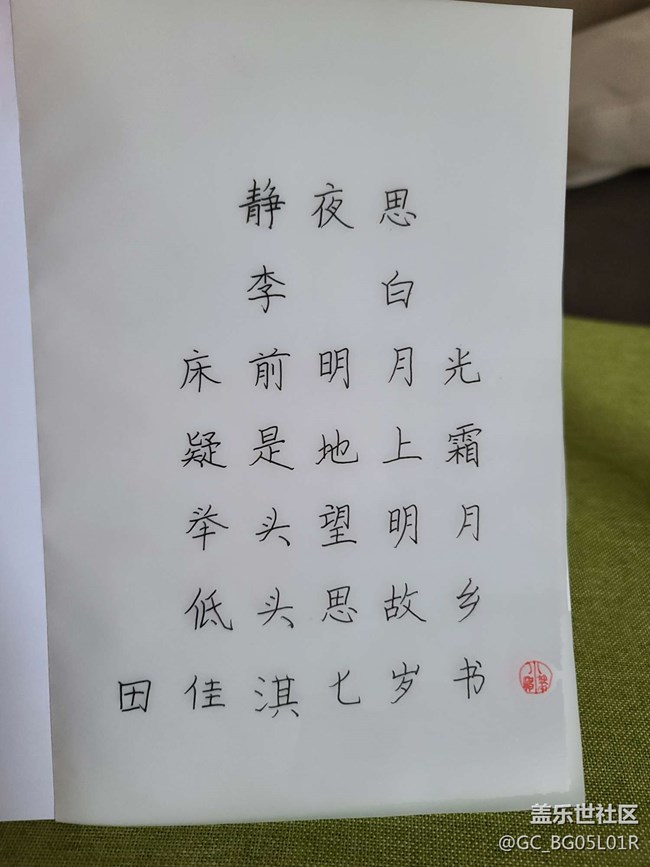 静夜思
李白
床前明月光
疑是地上霜
举头望明月
低头思故乡
田佳淇七岁书
盖乐世社区
@GC_BG05L01R